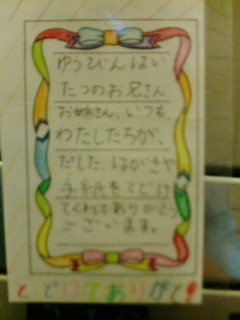 ゆうびんはい
たつのお兄さん
お姉さん、いつも、
わたしたちが、
だした、はがきや
手紙をとどけ
てくれてありがとう
ございます。
とどけてありがとう